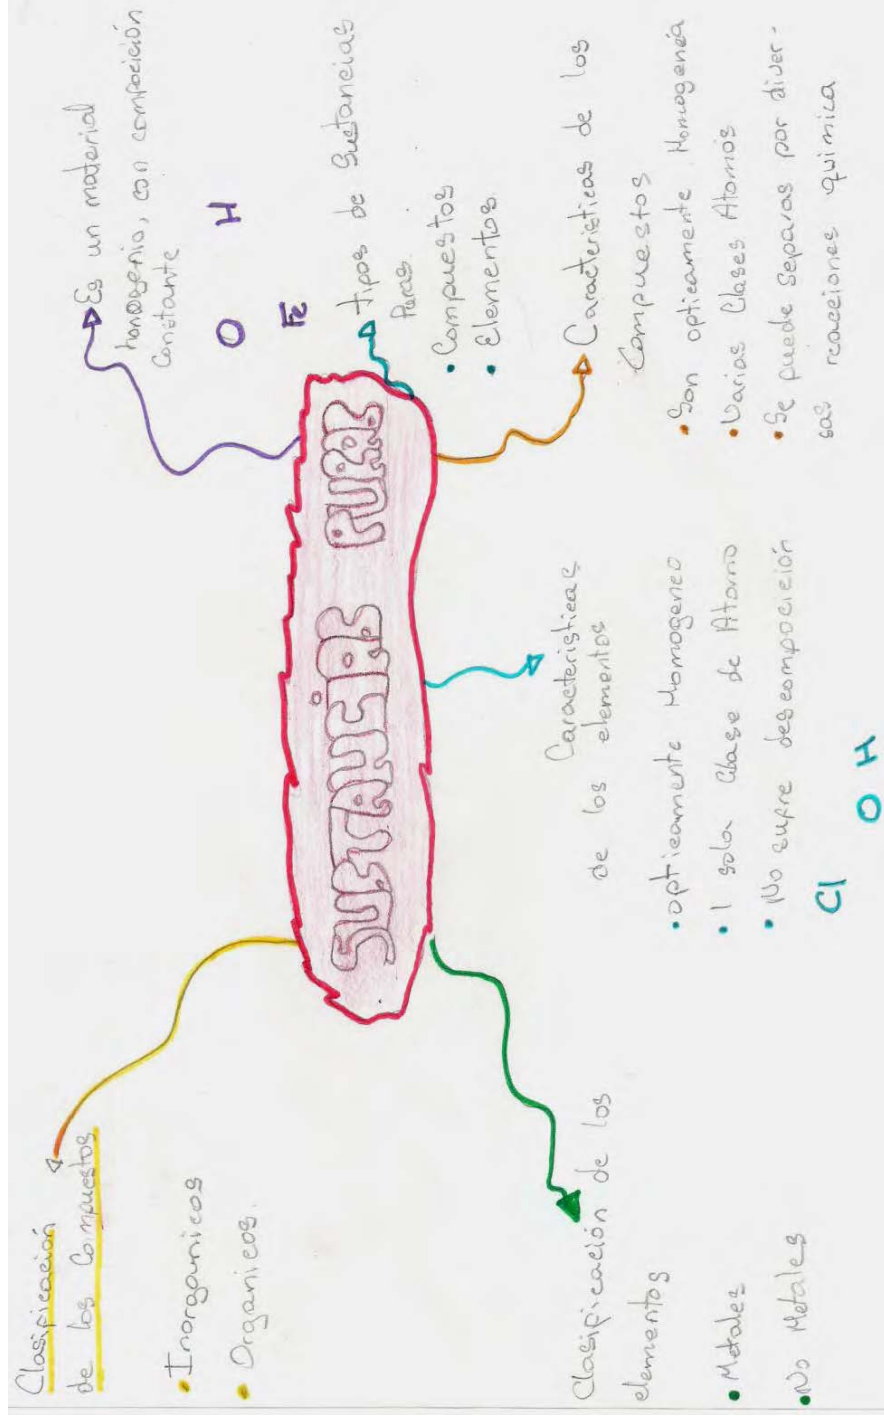 SUSTANCIAS PURAS
Es un material
homogenio, con compocición
Constante
O H
Fe
tipos de Sustancias
Puras.
• Compuestos
• Elementos.
Caracteristicas de los
Compuestos
• Son opticamente Homogenéa
• Varias Clases Atomos
• Se puede separas por diver-
sas reacciones quimica
Caracteristicas
de los elementos
• opticamente Homogeneo
• 1 sola Clase de Atomo
• No sufre descompocición
Cl O H
Clasificación de los
elementos
• Metales
• No Metales
Clasificación
de los Compuestos
• Inorganicos
• Organicos.